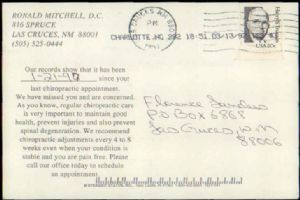 RONALD MITCHELL, D.C.
816 SPRUCE
LAS CRUCES, NM 88001
(505) 525-0444
LAS CRUCES
PM
CHARLOTTE 18:51 03-13-92
USA 20c
Our records show that it has been
1-21-90 since your
last chiropractic appointment.
We have missed you and are concerned.
As you know, regular chiropractic care
is very important to maintain good
health, prevent injuries and also prevent
spinal degeneration. We recommend
chiropractic adjustments every 4 to 8
weeks even when your condition is
stable and you are pain free. Please
call our office today to schedule
an appointment.
Florence Sanders
P O Box 6868
Las Cruces, N.M
88006